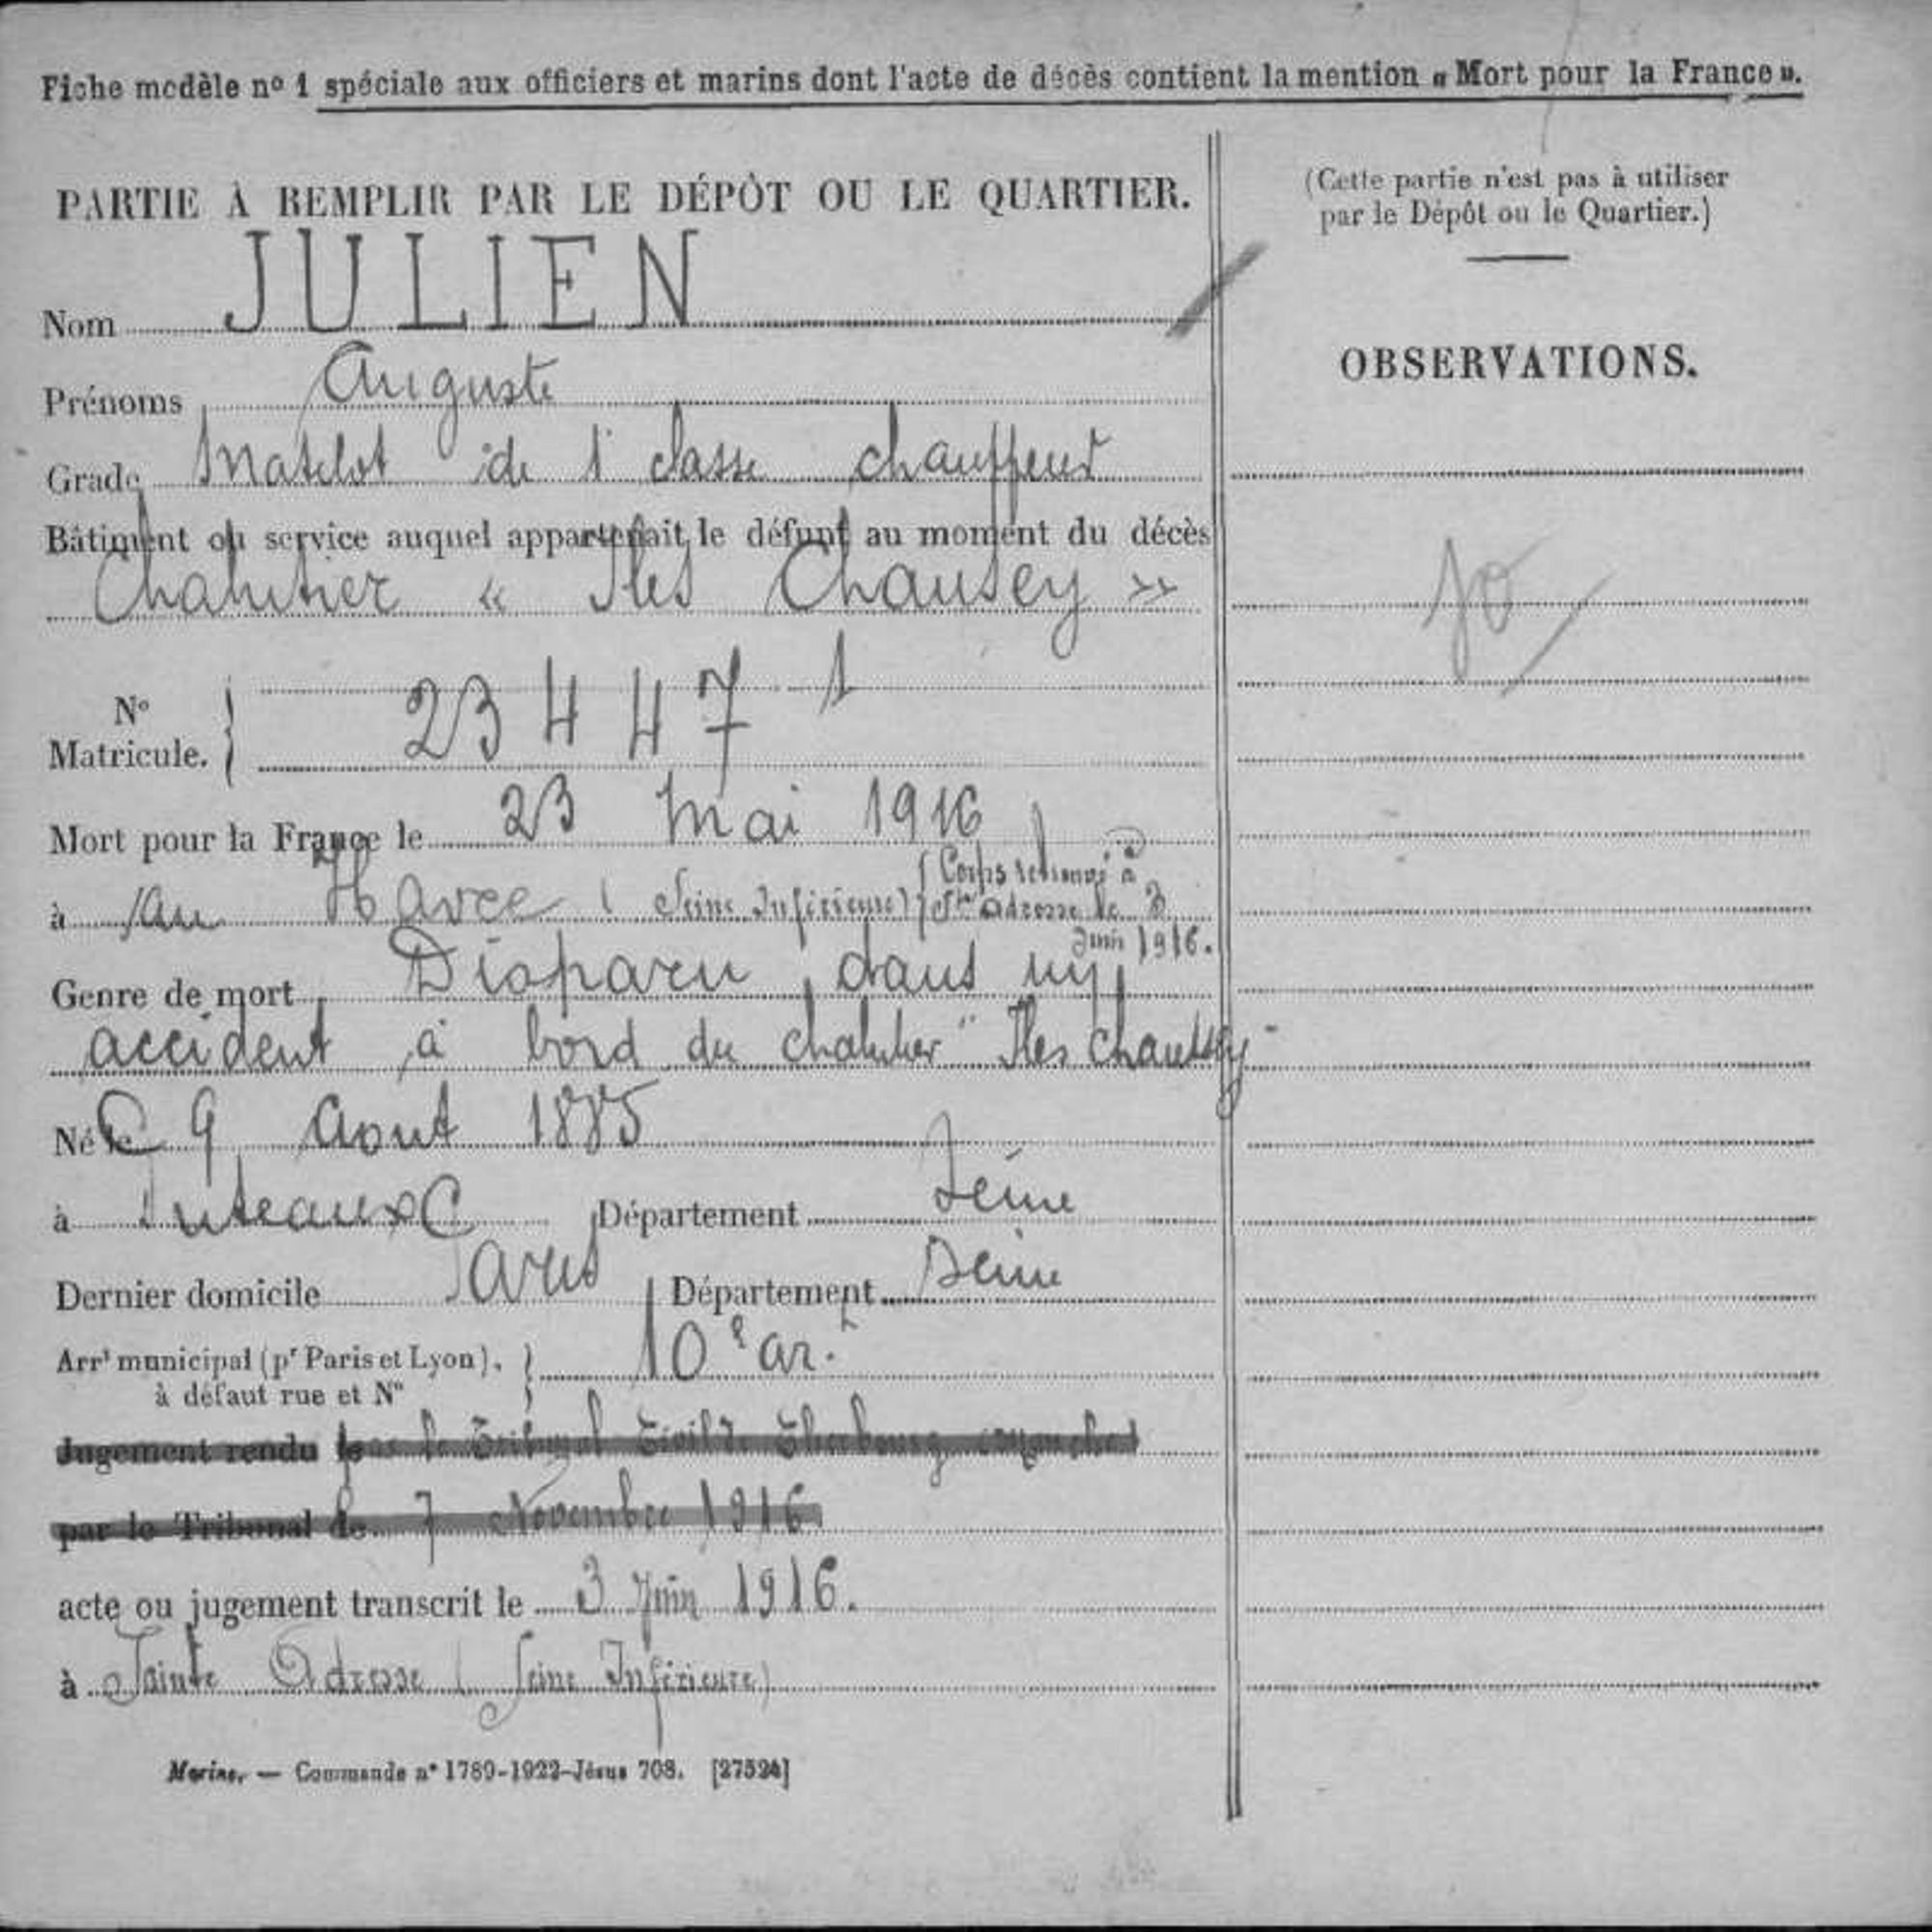 Fiche modèle nº 1 spéciale aux officiers et marins dont l'acte de décès contient la mention « Mort pour la France ».
PARTIE À REMPLIR PAR LE DÉPÔT OU LE QUARTIER.
Nom JULIEN
Prénoms Auguste
Grade Matelot de 1 classe chauffeur
Bâtiment ou service auquel appartenait le défunt au moment du décès
Chalutier « Iles Chausey »
Nº Matricule. 23447 1
Mort pour la France le 23 Mai 1916
à au Havre (Seine Inférieure) (Corps retrouvé à
Ste Adresse le 3
Juin 1916.
Genre de mort Disparu dans un
accident à bord du chalutier "Iles Chausey"
Né le 9 Aout 1885
à Puteaux Département Seine
Dernier domicile Paris Département Seine
Arrt municipal (pr Paris et Lyon), à défaut rue et Nº 10e ar.t
Jugement rendu par le Tribunal Civil de Cherbourg (Manche)
par le Tribunal de 7 Novembre 1916
acte ou jugement transcrit le 3 Juin 1916.
à Sainte Adresse (Seine Inférieure)
Marine. — Commande nº 1789-1922-Jésus 708. [27524]
(Cette partie n'est pas à utiliser
par le Dépôt ou le Quartier.)
OBSERVATIONS.